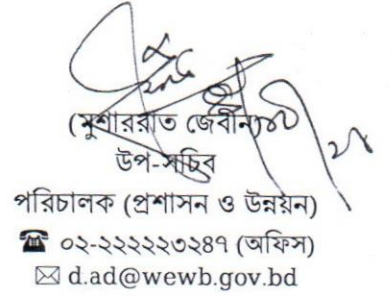 (মুশাররাত জেবীন)
উপ-সচিব
পরিচালক (প্রশাসন ও উন্নয়ন)
☎ ০২-২২২২২৩২৪৭ (অফিস)
✉ d.ad@wewb.gov.bd